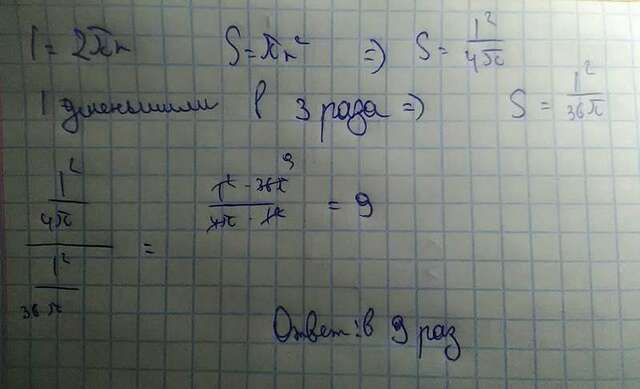 l = 2πr S = πr² => S = l²/4π
l уменьшили в 3 раза => S = l²/36π
(l²/4π)/(l²/36π) = (l² · 36π)/(4π · l²) 9 = 9
Ответ: в 9 раз